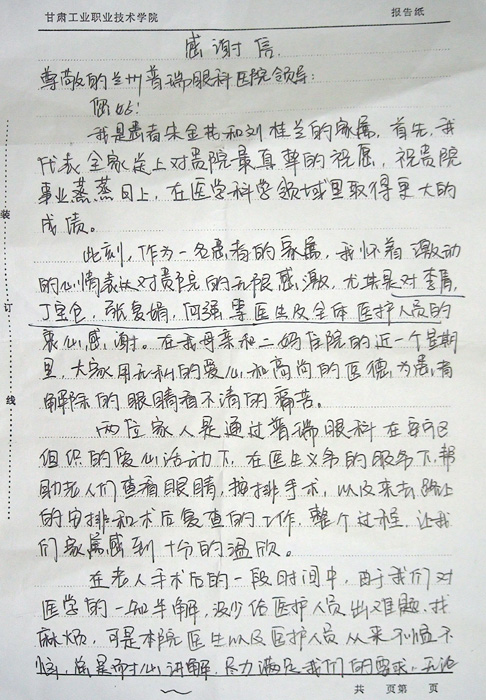 甘肃工业职业技术学院
报告纸
感谢信.
尊敬的兰州普瑞眼科医院领导:
您好!
我是患者朱金花和刘桂兰的家属,首先,我
代表全家送上对贵院最真挚的祝愿,祝贵院
事业蒸蒸日上,在医学科学领域里取得更大的
成绩。
此刻,作为一名患者的家属,我怀着激动
的心情表达对贵院的无限感激,尤其是对李青,
丁宝仓,张复娟,何强等医生及全体医护人员的
衷心感谢。在我母亲和二妈住院的近一个星期
里,大家用无私的爱心和高尚的医德,为患者
解除的眼睛看不清的痛苦。
两位家人是通过普瑞眼科在
组织的爱心活动下,在医生义务的服务下,帮
助老人们查看眼睛,按排手术,以及来去路上
的安排和术后复查的工作,整个过程,让我
们家属感到十分的温欣。
在老人手术后的一段时间中,由于我们对
医学的一知半解,没少给医护人员出难题,找
麻烦,可是本院医生以及医护人员从来不愠不
恼,总是耐心讲解,尽力满足我们的要求,无论
装
订
线
共 页第 页